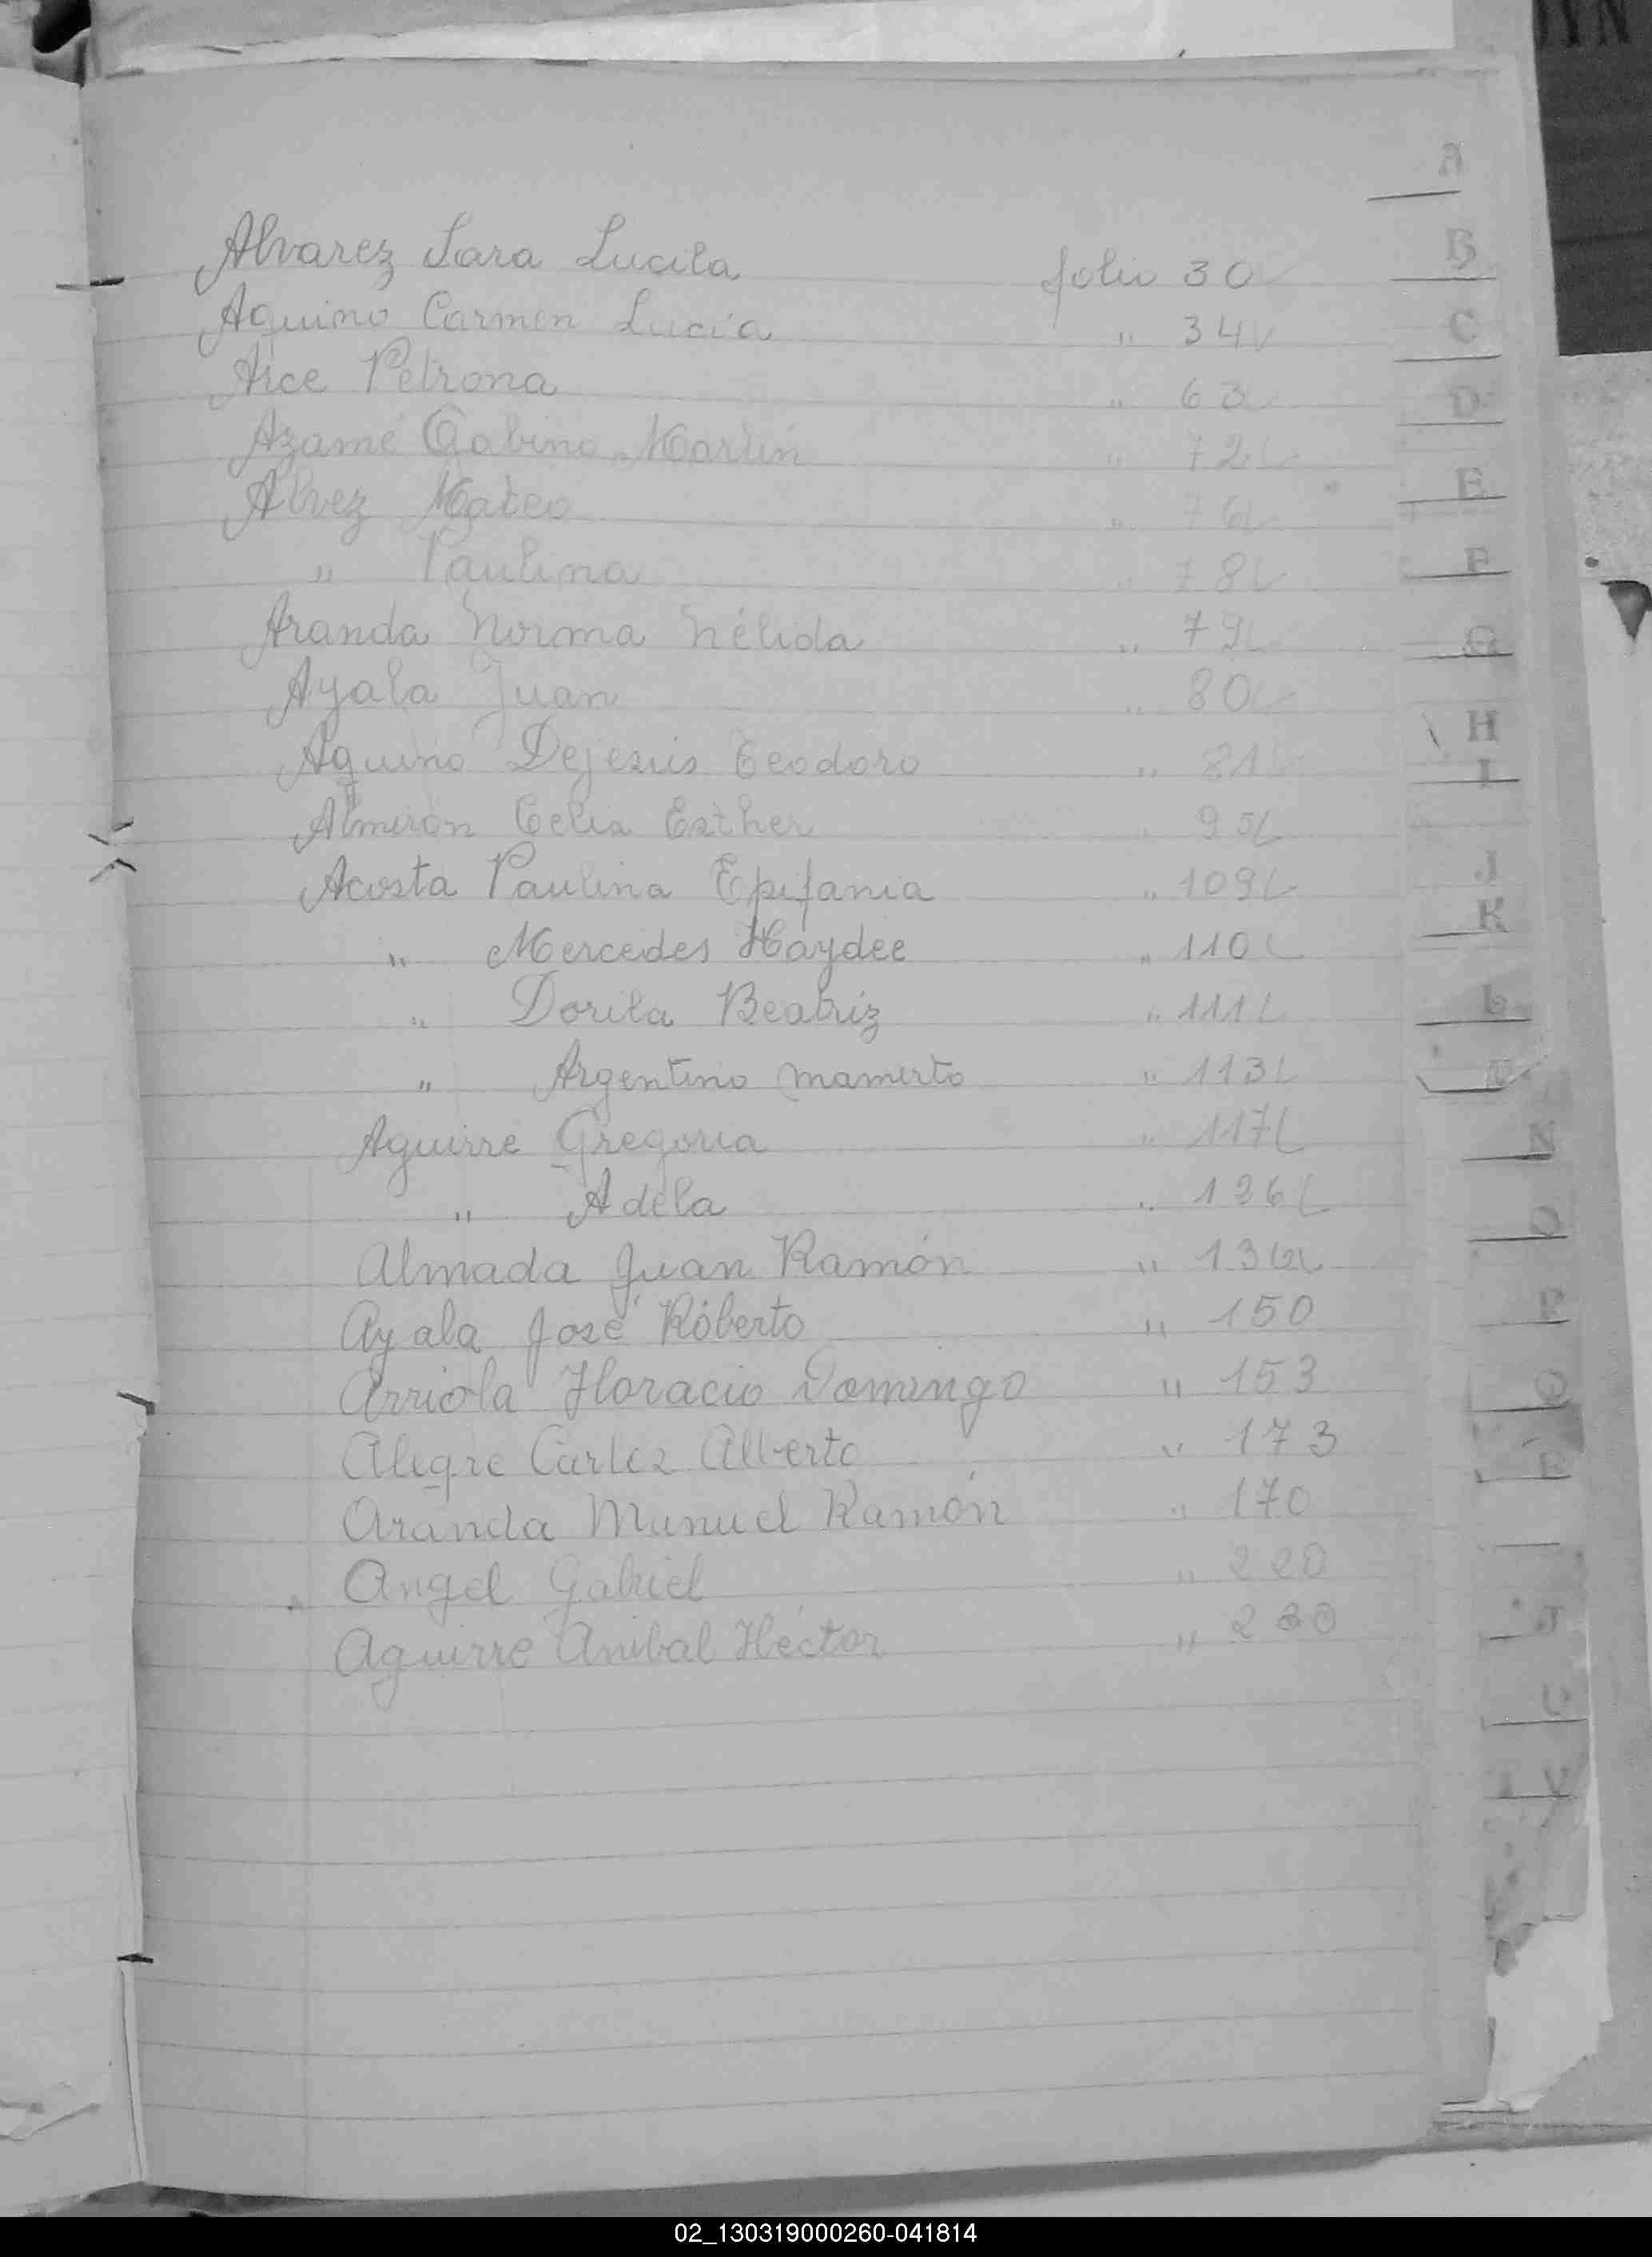 A
Alvarez Sara Lucila folio 30
B
Aquino Carmen Lucía " 34
C
Arce Petrona " 63
D
Azamé Gabino Martín " 72
Alvez Mateo " 76
E
" Paulina " 78
F
Aranda Norma Nélida " 79
G
Ayala Juan " 80
H
Aquino Dejesús Teodoro " 81
I
Almirón Celia Esther " 95
Acosta Paulina Epifania " 109
J
K
" Mercedes Haydee " 110
" Dorila Beatriz " 111
L
" Argentino Mamerto " 113
Aguirre Gregoria " 117
N
" Adela " 126
O
Almada Juan Ramón "
Ayala José Róberto " 150
P
Arriola Horacio Domingo " 153
Q
Alegre Carlos Alberto " 173
Aranda Manuel Ramón " 170
Angel Gabriel " 220
Aguirre Anibal Héctor "
T
U
V
02_130319000260-041814